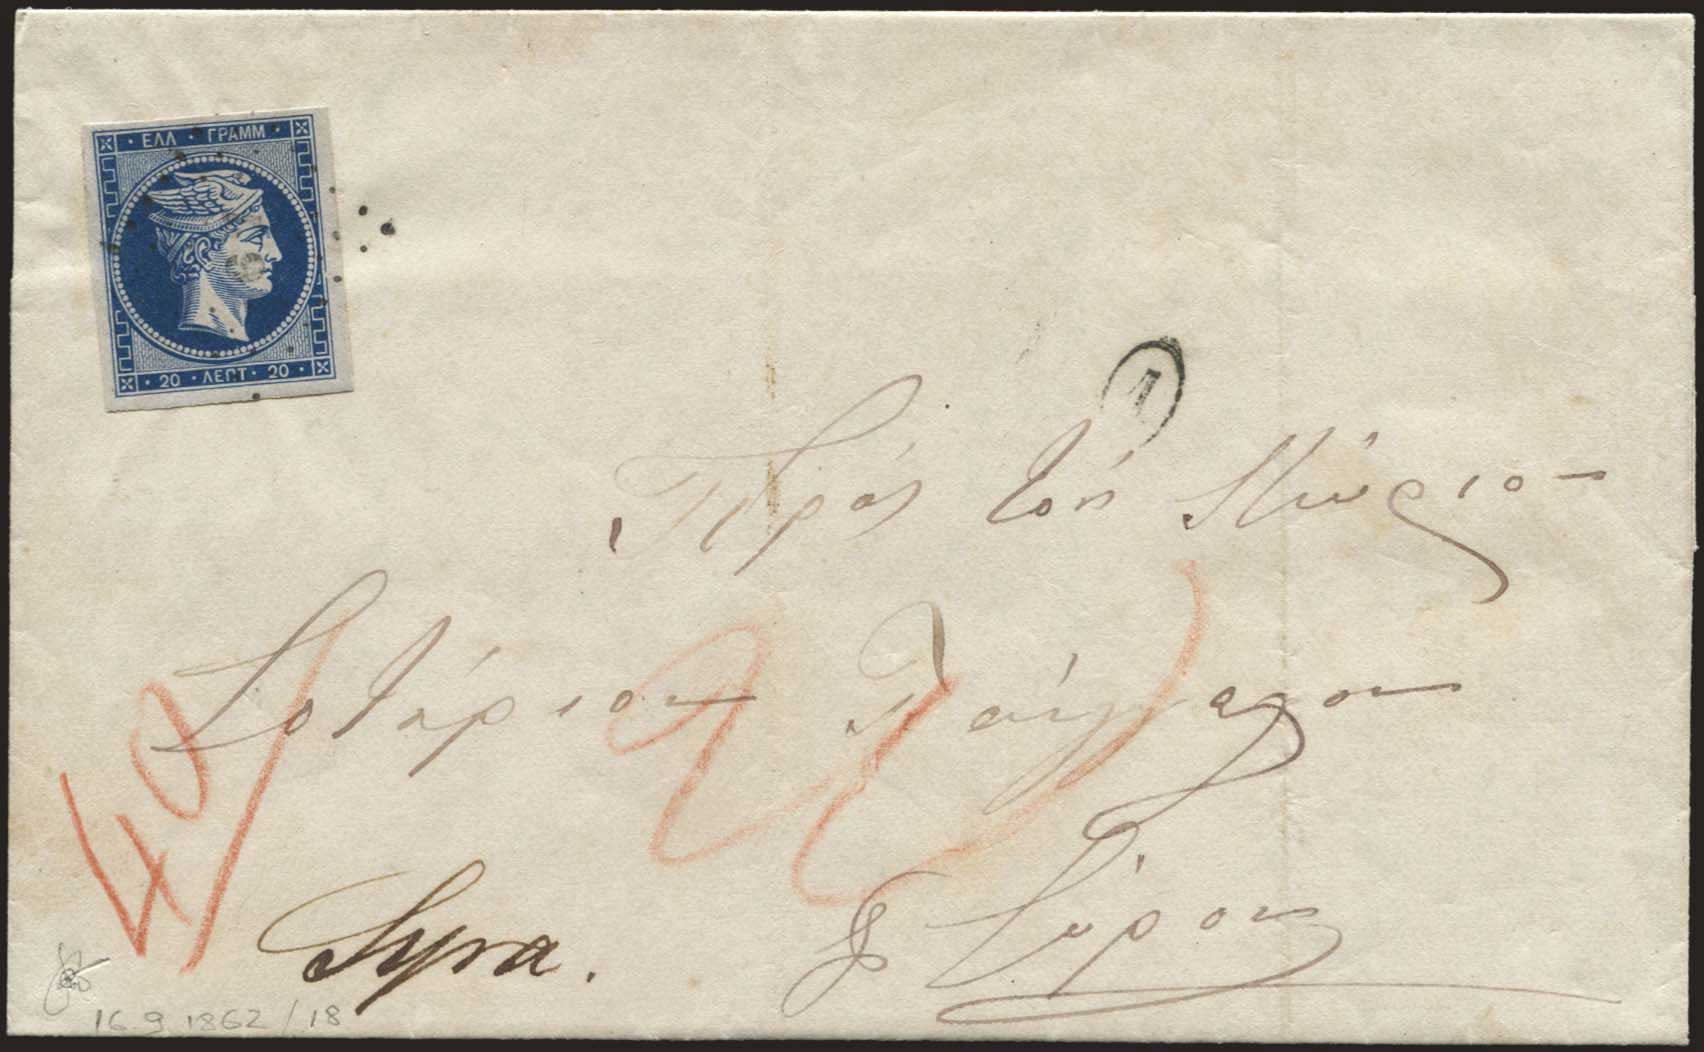 ΕΛΛ · ΓΡΑΜΜ
20 · ΛΕΠΤ · 20
1
Πρὸς τὸν Κύριον
Σωτήριον
40
Syra.
Σύρον
16 9 1862 / 18